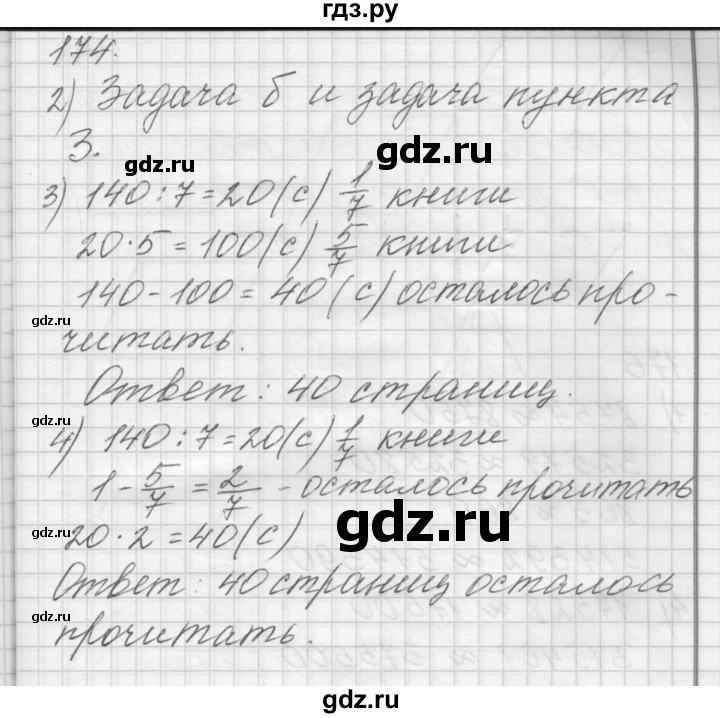 гдз.ру
174.
2) Задача б и задача пункта
3.
gdz.ru
gdz.ru
3) 140:7=20(с) 1/7 книги
20·5=100(с) 5/7 книги
140-100=40(с) осталось про-
gdz.ru
читать.
Ответ: 40 страниц.
gdz.ru
4) 140:7=20(с) 1/7 книги
1-5/7=2/7 - осталось прочитать
gdz.ru
20·2=40(с)
Ответ: 40 страниц осталось
gdz.ru
прочитать.
gdz.ru